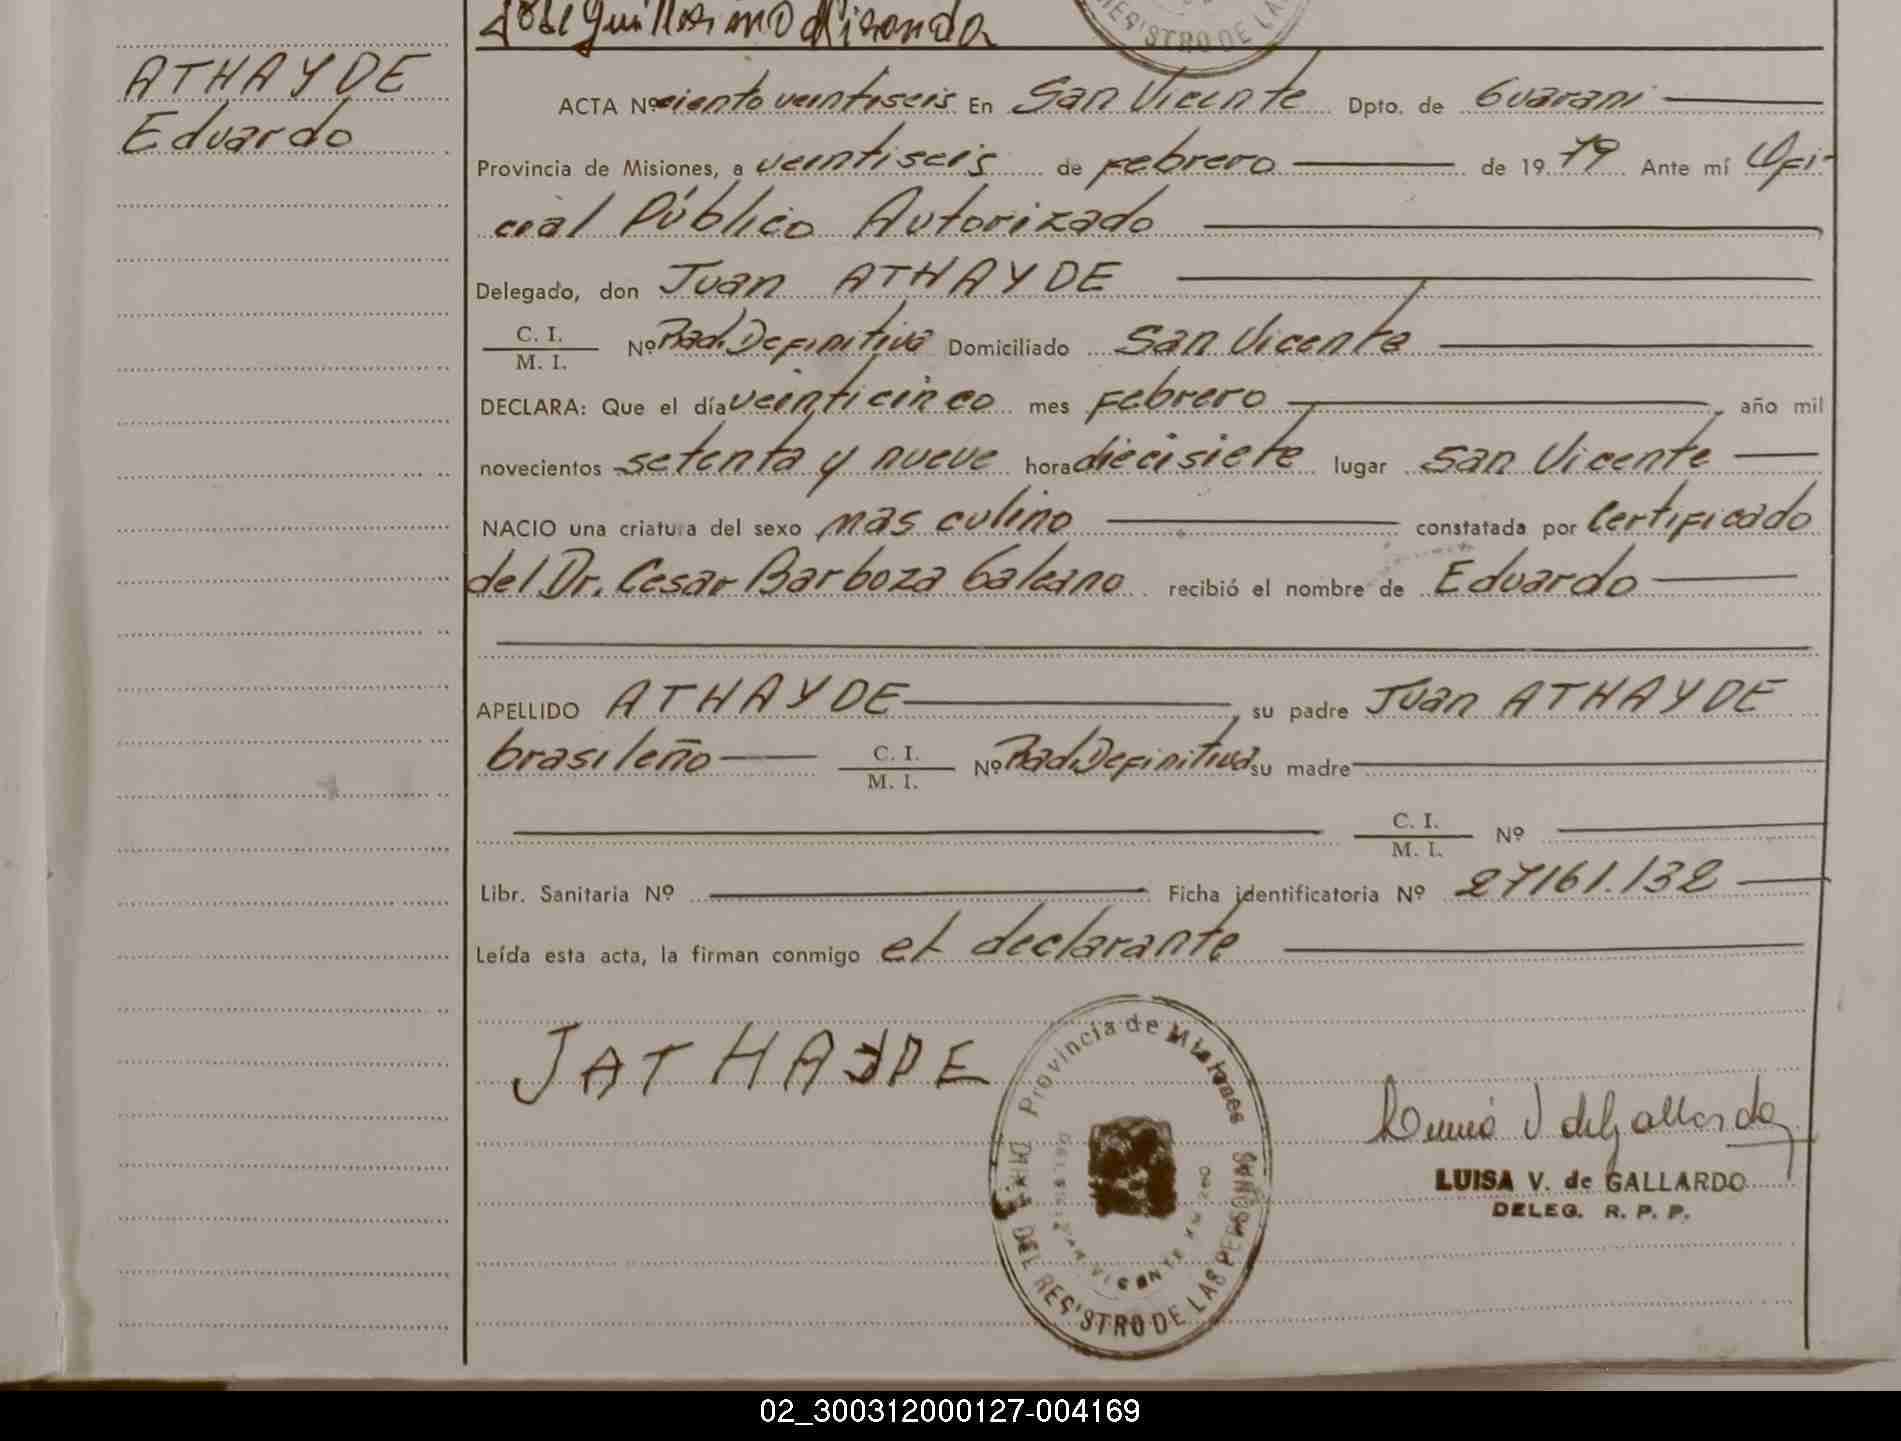 José Guillermo Miranda
REGISTRO DE LAS
ATHAYDE
Eduardo
ACTA Nº ciento veintiseis En San Vicente Dpto. de Guarani
Provincia de Misiones, a veintiseis de febrero de 19 79 Ante mí Ofi-
cial Público Autorizado
Delegado, don Juan ATHAYDE
C. I.
M. I. Nº Rad. Definitiva Domiciliado San Vicente
DECLARA: Que el día veinticinco mes febrero, año mil
novecientos setenta y nueve hora diecisiete lugar San Vicente
NACIO una criatura del sexo masculino constatada por Certificado
del Dr. Cesar Barboza Galeano recibió el nombre de Eduardo
APELLIDO ATHAYDE, su padre Juan ATHAYDE
brasileño C. I. M. I. Nº Rad. Definitiva su madre
C. I. M. I. Nº
Libr. Sanitaria Nº Ficha identificatoria Nº 27161.132
Leída esta acta, la firman conmigo el declarante
JATHAYDE
Provincia de Misiones
DEL REGISTRO DE LAS PERSONAS
SAN VICENTE
V de Gallardo
LUISA V. de GALLARDO
DELEG. R. P. P.
02_300312000127-004169